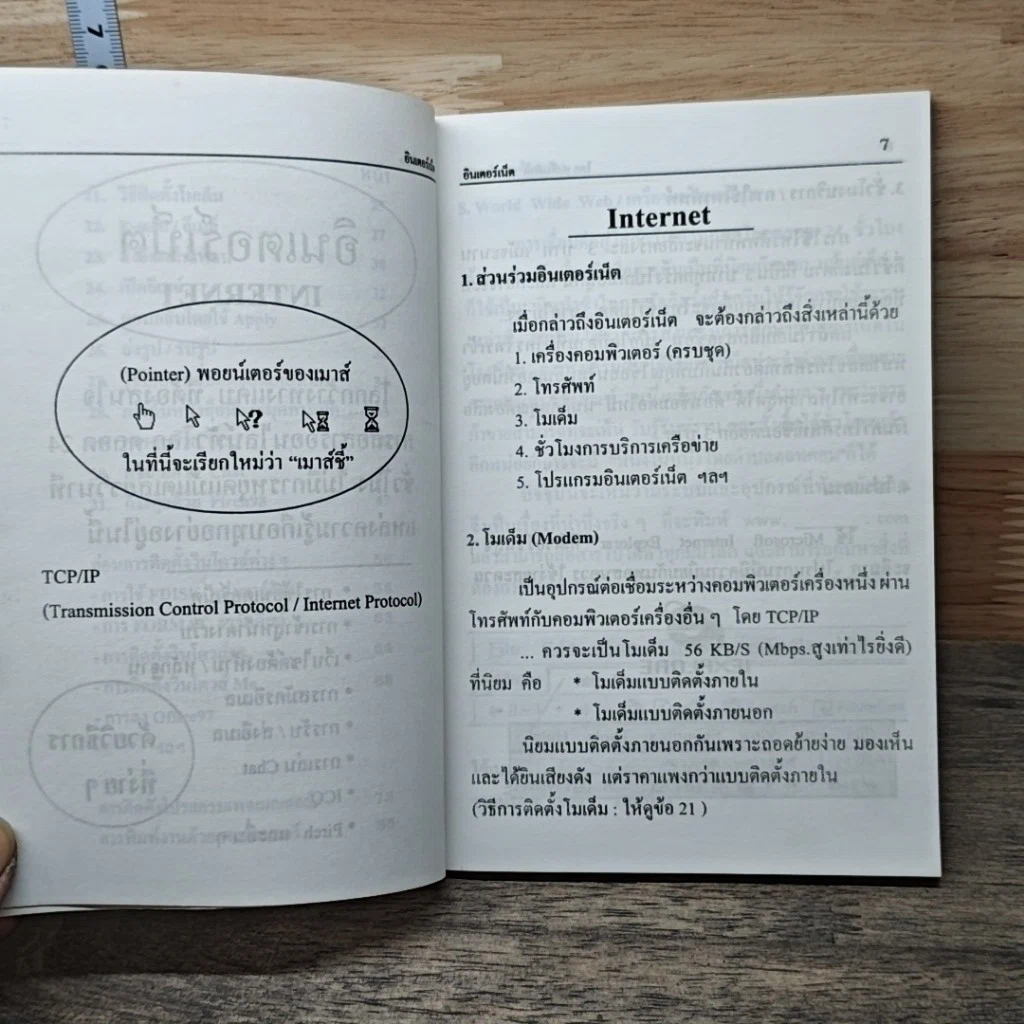 7
อินเตอร์เน็ต
(Pointer) พอยน์เตอร์ของเมาส์
ในที่นี้จะเรียกใหม่ว่า “เมาส์ชี้”
TCP/IP
(Transmission Control Protocol / Internet Protocol)
7
อินเตอร์เน็ต
Internet
1. ส่วนร่วมอินเตอร์เน็ต
เมื่อกล่าวถึงอินเตอร์เน็ต จะต้องกล่าวถึงสิ่งเหล่านี้ด้วย
1. เครื่องคอมพิวเตอร์ (ครบชุด)
2. โทรศัพท์
3. โมเด็ม
4. ชั่วโมงการบริการเครือข่าย
5. โปรแกรมอินเตอร์เน็ต ฯลฯ
2. โมเด็ม (Modem)
เป็นอุปกรณ์ต่อเชื่อมระหว่างคอมพิวเตอร์เครื่องหนึ่ง ผ่าน
โทรศัพท์กับคอมพิวเตอร์เครื่องอื่น ๆ โดย TCP/IP
... ควรจะเป็นโมเด็ม 56 KB/S (Mbps.สูงเท่าไรยิ่งดี)
ที่นิยม คือ * โมเด็มแบบติดตั้งภายใน
* โมเด็มแบบติดตั้งภายนอก
นิยมแบบติดตั้งภายนอกกันเพราะถอดย้ายง่าย มองเห็น
และได้ยินเสียงดัง แต่ราคาแพงกว่าแบบติดตั้งภายใน
(วิธีการติดตั้งโมเด็ม : ให้ดูข้อ 21 )